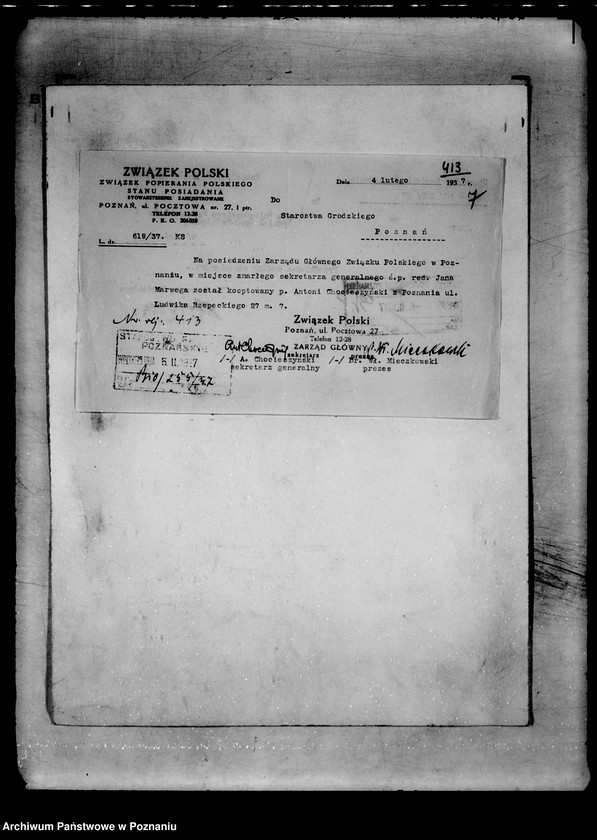 413
ZWIĄZEK POLSKI
ZWIĄZEK POPIERANIA POLSKIEGO
STANU POSIADANIA
STOWARZYSZENIE ZAREJESTROWANE
POZNAŃ, ul. POCZTOWA nr. 27, I ptr.
TELEFON 12-28
P. K. O. 206858
Dnia 4 lutego 1937 r.
7
Do
Starostwa Grodzkiego
Poznań
L. dz. 619/37. KS
Na posiedzeniu Zarządu Głównego Związku Polskiego w Poz-
naniu, w miejsce zmarłego sekretarza generalnego ś.p. red. Jana
Marwega został kooptowany p. Antoni Chocieszyński z Poznania ul.
Ludwika Rzepeckiego 27 m. 7.
Nr. rej. 413
Związek Polski
Poznań, ul. Pocztowa 27
Telefon 12-28
ZARZĄD GŁÓWNY
sekretarz prezes
/-/ A. Chocieszyński /-/ Dr. Wł. Mieczkowski
sekretarz generalny prezes
POZNAŃSKI
5. II. 1937
255/37
Archiwum Państwowe w Poznaniu